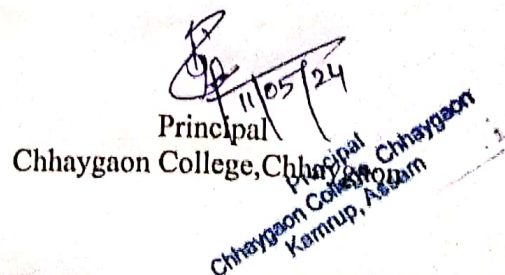 11/05/24
Principal
Chhaygaon College,Chhaygaon
Principal
Chhaygaon College, Chhaygaon
Kamrup, Assam